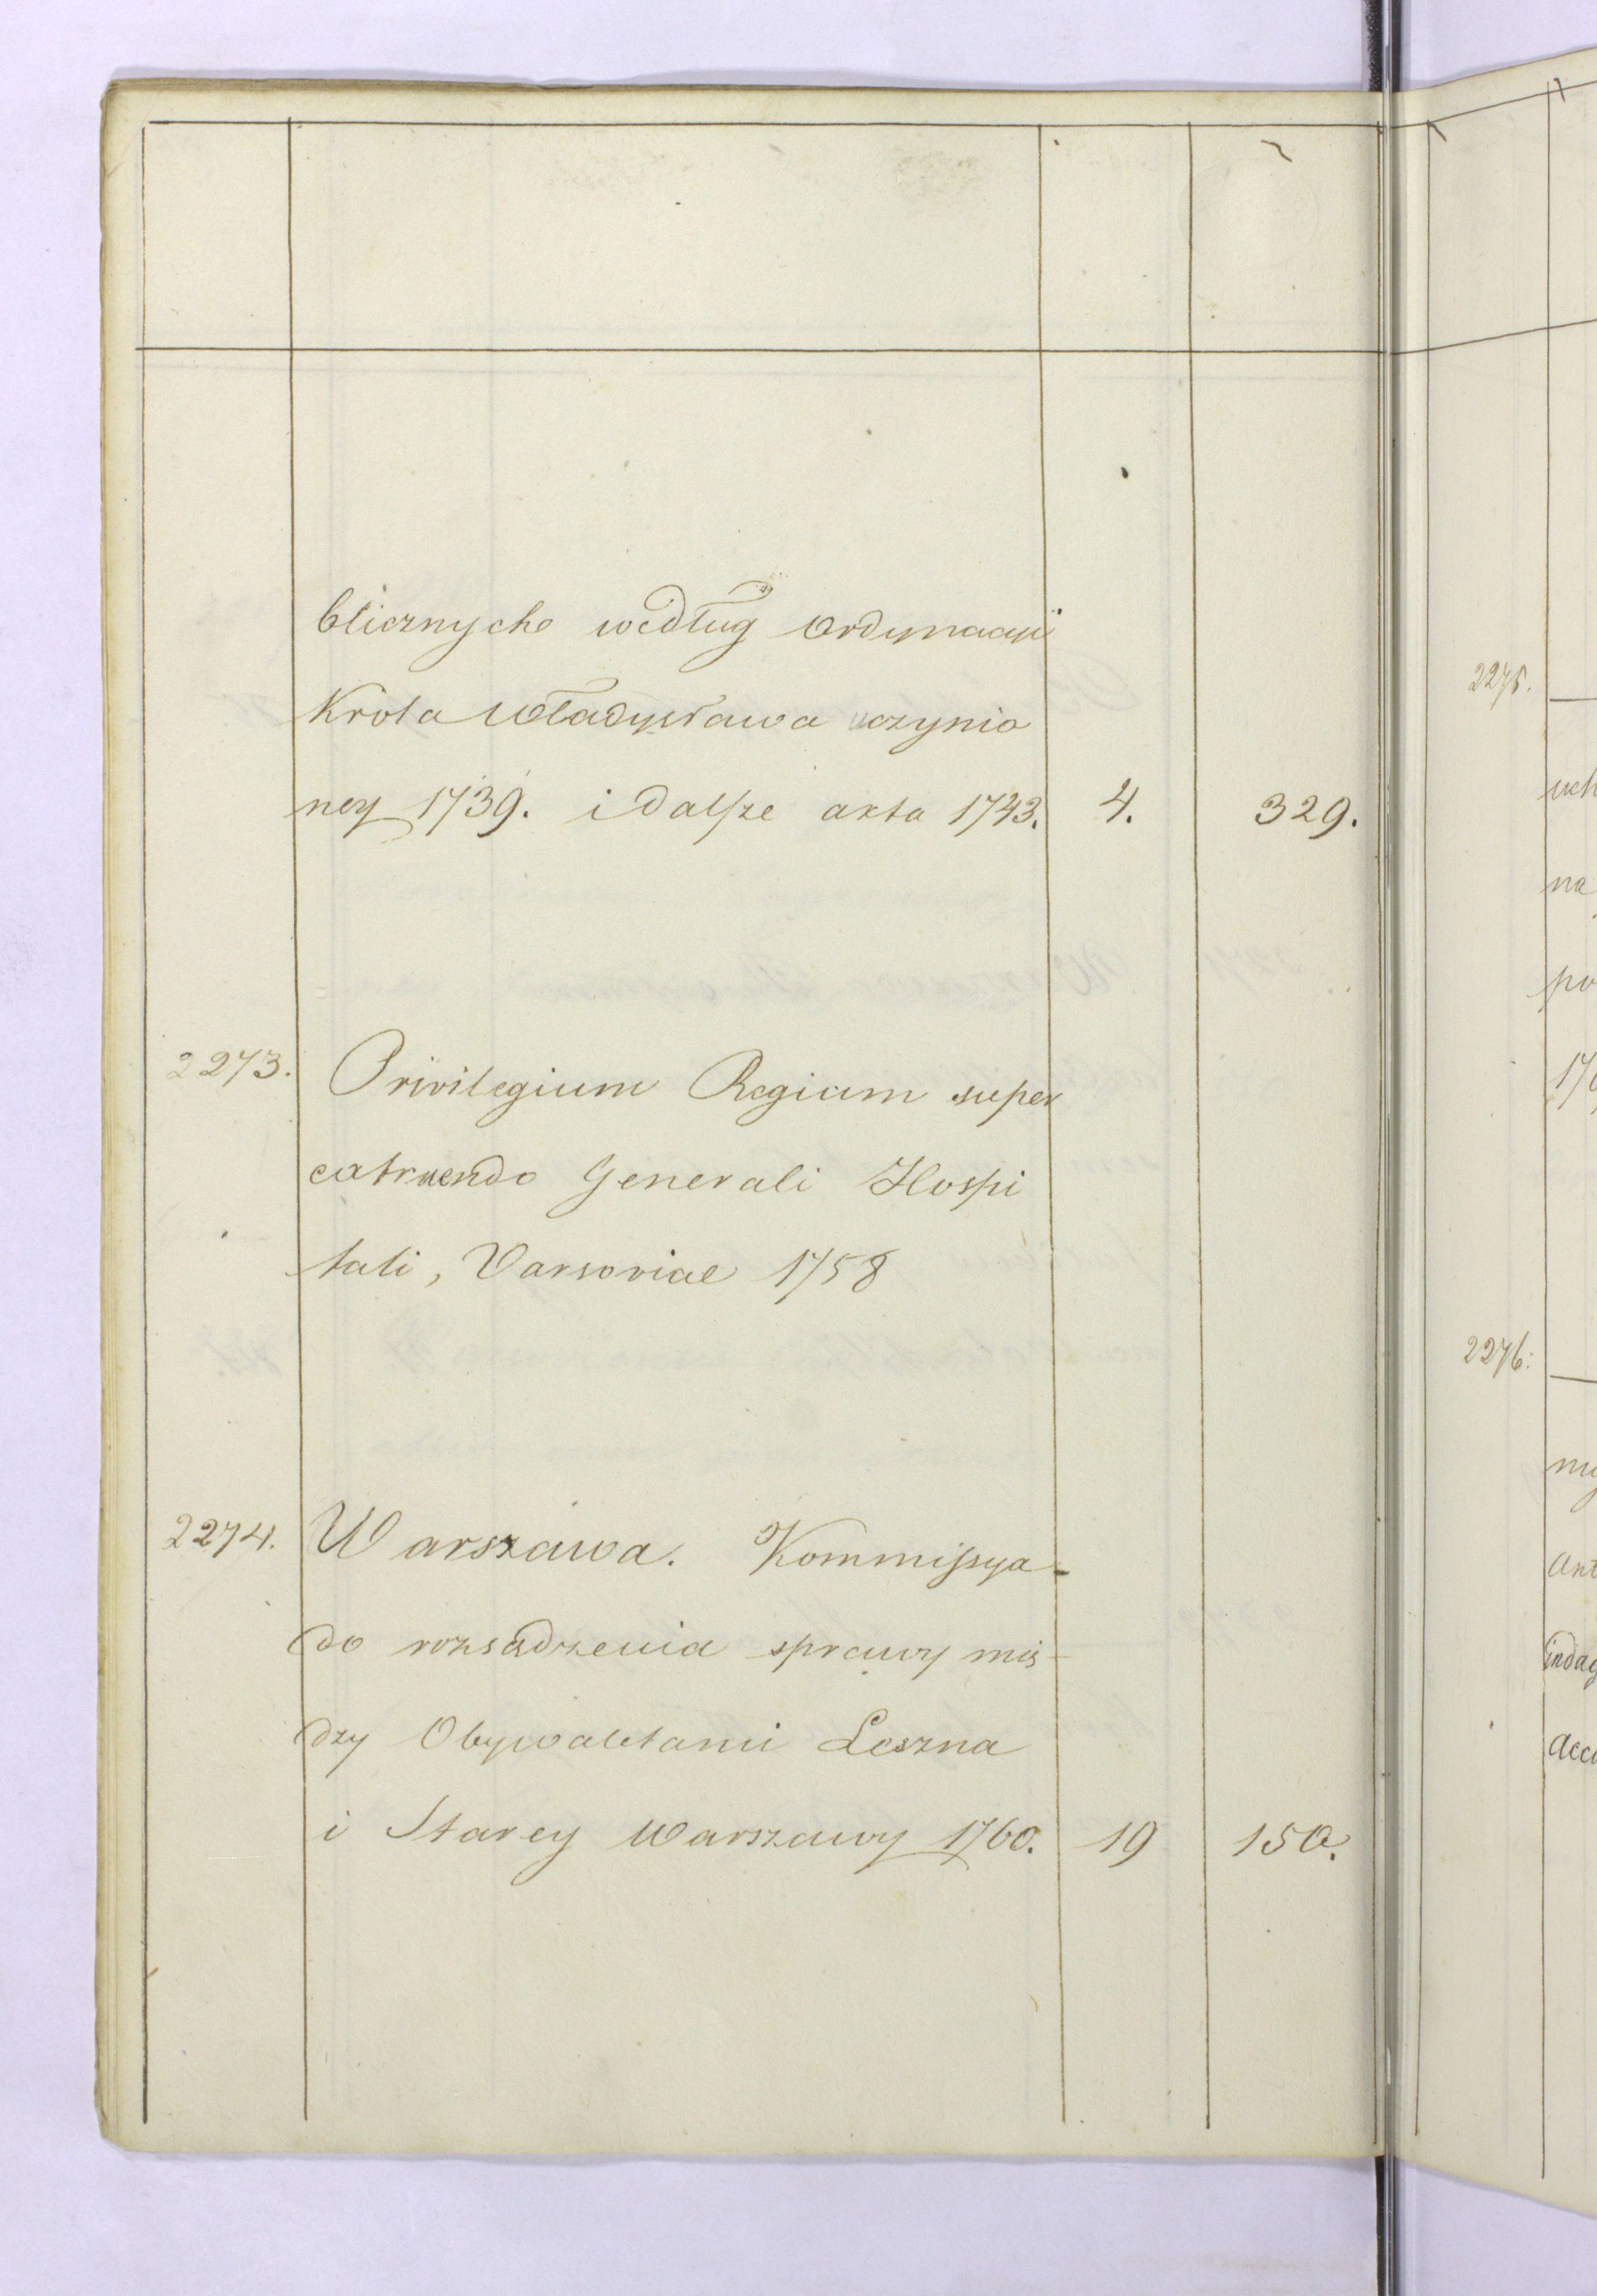 blicznych według Ordynacyi
Krola Władysława uczynio
ney 1739. i dalsze akta 1743. 4. 329.
2273. Privilegium Regium super
exstruendo Generali Hospi
tali, Varsoviae 1758
2274. Warszawa. Kommissya
do rozsądzenia sprawy mię-
dzy Obywatelami Leszna
i Starey Warszawy 1760. 19 150.
2275.
na
po
2276.